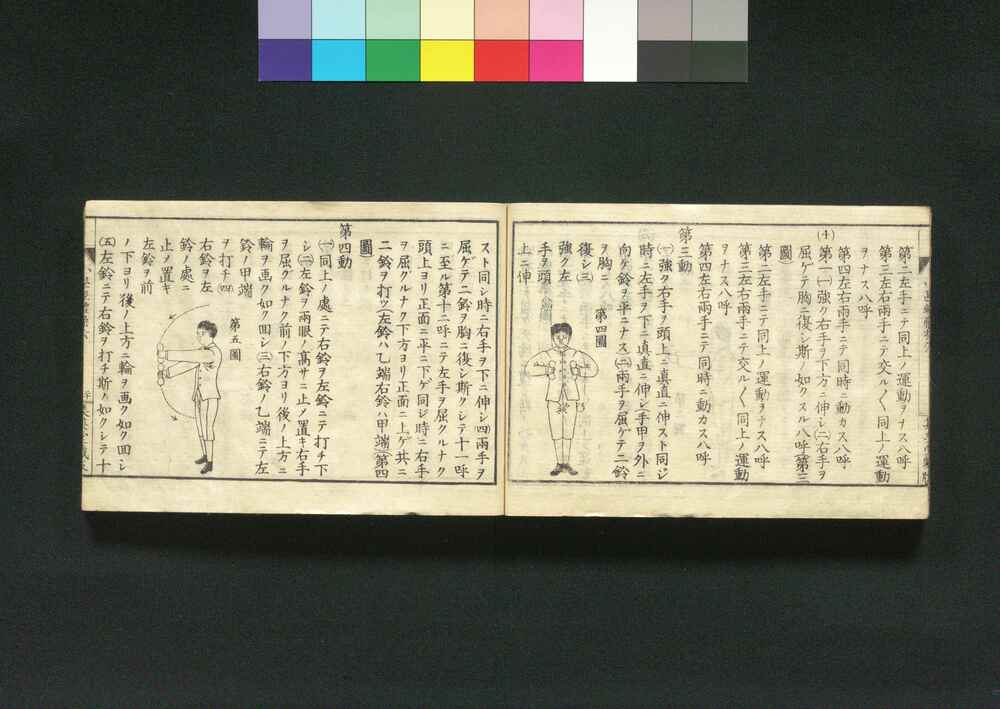 第二左手ニテ同上ノ運動ヲナス八呼
第三左右兩手ニテ交ル〱同上ノ運動
ヲナス八呼
第四左右兩手ニテ同時ニ動カス八呼
(4)
第一(一)強ク右手ヲ下方ニ伸シ(二)右手ヲ
屈ゲテ胸ニ復シ斯ノ如クスル八呼(第三
圖)
第二左手ニテ同上ノ運動ヲナス八呼
第三左右兩手ニテ交ル〱同上ノ運動
ヲナス八呼
第四左右兩手ニテ同時ニ動カス八呼
第三動
(一)強ク右手ヲ頭上ニ真直ニ伸スト同ジ
時ニ左手ヲ下ニ真直ニ伸シ手甲ヲ外ニ
向ケ鈴ヲ平ニナス(二)兩手ヲ屈ゲテ二鈴
ヲ胸ニ
復シ(三)
強ク左
手ヲ頭
上ニ伸
第四圖
スト同シ時ニ右手ヲ下ニ伸シ(四)兩手ヲ
屈ゲテ二鈴ヲ胸ニ復シ斯クシテ十一呼
ニ至ル第十二呼ニテ左手ヲ屈クルナク
頭上ヨリ正面ニ平ニ下ゲ同ジ時ニ右手
ヲ屈クルナク下方ヨリ正面ニ上ゲ共ニ
二鈴ヲ打ツ(左鈴ハ乙端右鈴ハ甲端)(第四
圖)
第四動
(一)同上ノ處ニテ右鈴ヲ左鈴ニテ打チ下
シ(二)左鈴ヲ兩眼ノ髙サニ止ノ置キ右手
ヲ屈クルナク前ノ下方ヨリ後ノ上方ニ
輪ヲ画ク如ク回シ(三)右鈴ノ乙端ニテ左
鈴ノ甲端
ヲ打チ(四)
右鈴ヲ左
鈴ノ處ニ
止ノ置キ
左鈴ヲ前
第五圖
ノ下ヨリ後ノ上方ニ輪ヲ画ク如ク回シ
(五)左鈴ニテ右鈴ヲ打チ斯ノ如クシテ十